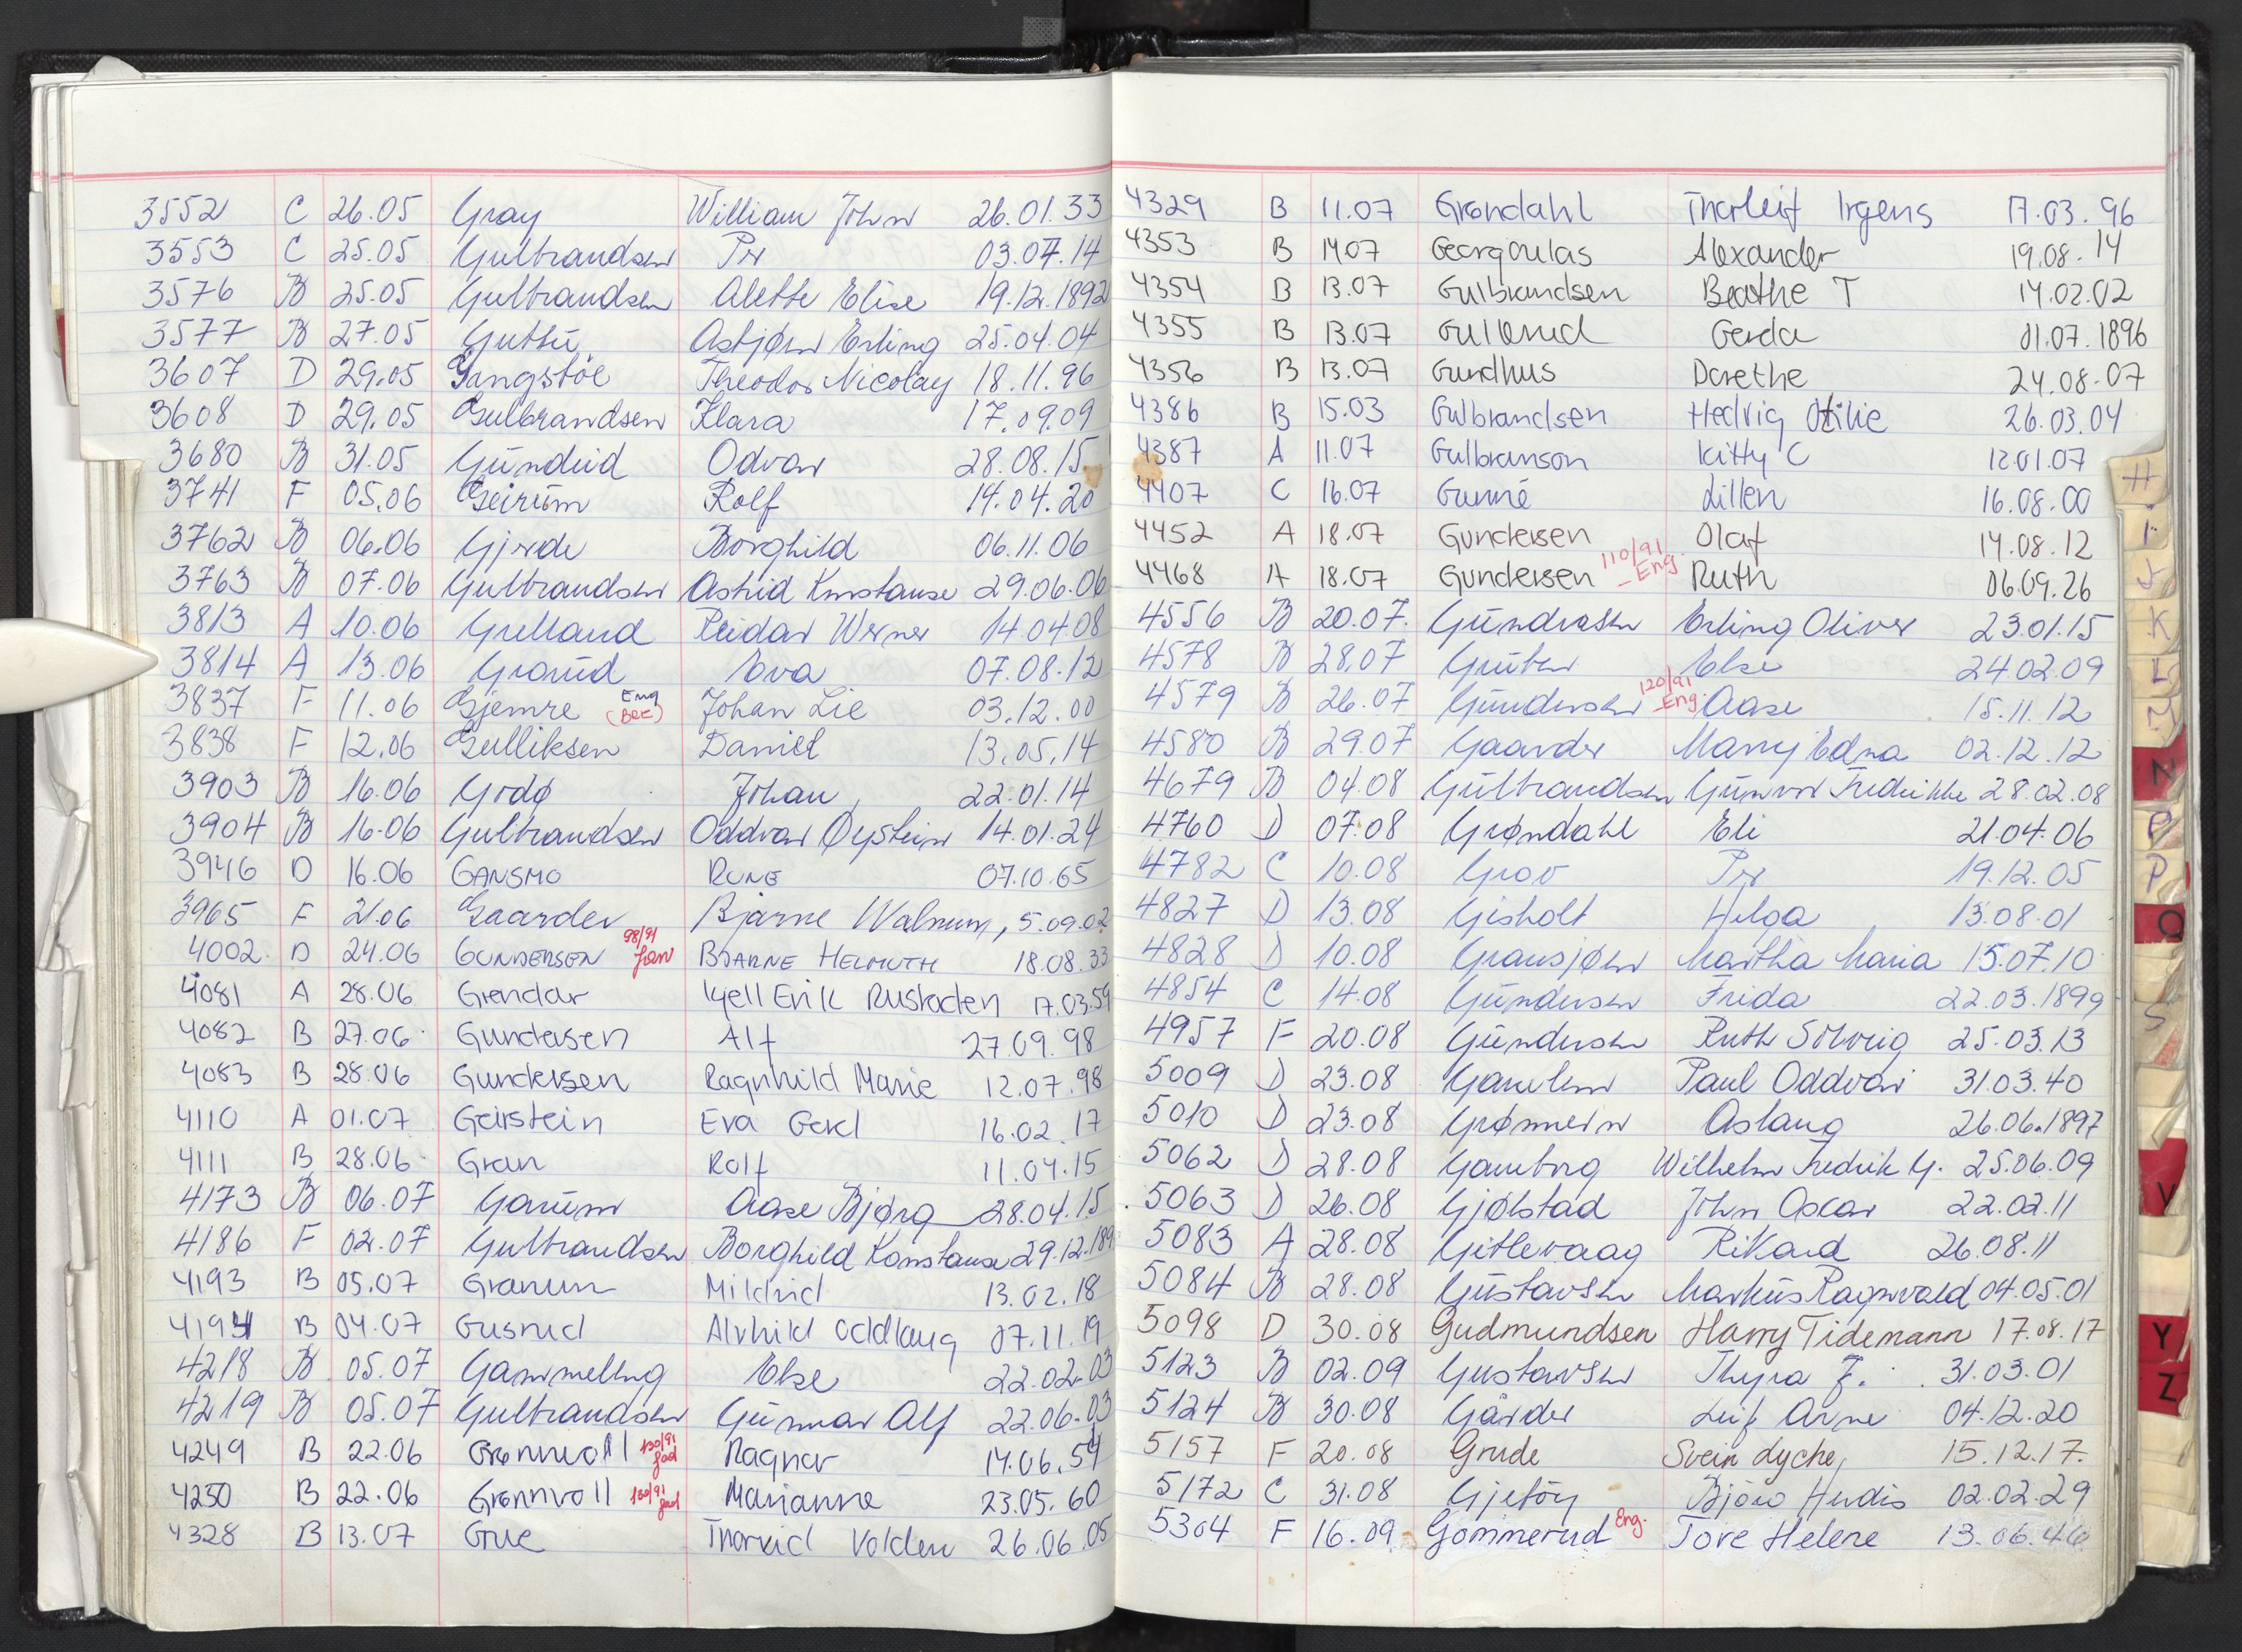 3552 C 26.05 Gray William John 26.01.33
3553 C 25.05 Gulbrandsen Per 03.07.14
3576 B 25.05 Gulbrandsen Alette Elise 19.12.1892
3577 B 27.05 Guttu Asbjørn Erling 25.04.04
3607 D 29.05 Gangstöe Theodor Nicolay 18.11.96
3608 D 29.05 Gulbrandsen Klara 17.09.09
3680 B 31.05 Gundrid Odvar 28.08.15
3741 F 05.06 Geirum Rolf 14.04.20
3762 B 06.06 Gjerde Borghild 06.11.06
3763 B 07.06 Gulbrandsen Astrid Konstanse 29.06.06
3813 A 10.06 Grelland Reidar Werner 14.04.08
3814 A 13.06 Grorud Eva 07.08.12
3837 F 11.06 Gjemre Eng (BRE) Johan Lie 03.12.00
3838 F 12.06 Gulliksen Daniel 13.05.14
3903 B 16.06 Godø Johan 22.01.14
3904 B 16.06 Gulbrandsen Oddvar Øystein 14.01.24
3946 D 16.06 GANSMO RUNE 07.10.65
3965 F 21.06 Gaarder Bjarne Walnum, 5.09.02
4002 D 24.06 GUNDERSEN 98/91 Jan BJARNE HELMUTH 18.08.33
4081 A 28.06 Grendar Kjell Erik Rustaden 17.03.59
4082 B 27.06 Gundersen Alf 27.09.98
4083 B 28.06 Gundersen Ragnhild Marie 12.07.98
4110 A 01.07 Geirstein Eva Gerd 16.02.17
4111 B 28.06 Gran Rolf 11.04.15
4173 B 06.07 Garum Aase Bjørg 28.04.15
4186 F 02.07 Gulbrandsen Borghild Konstanse 29.12.189
4193 B 05.07 Granum Mildrid 13.02.18
4194 B 04.07 Gusrud Alvhild Oddlaug 07.11.19
4218 B 05.07 Gammelby Else 22.02.03
4219 B 05.07 Gulbrandsen Gunnar Alf 22.06.03
4249 B 22.06 Grønnvoll 130/91 Ragnar 14.06.54
4250 B 22.06 Grønnvoll 130/91 Marianne 23.05.60
4328 B 13.07 Grue Thorvid Volden 26.06.05
4329 B 11.07 Grøndahl Thorleif Irgens 17.03.96
4353 B 14.07 Georgoulas Alexander 19.08.14
4354 B 13.07 Gulbrandsen Beathe T 14.02.02
4355 B 13.07 Gullerud Gerda 01.07.1896
4356 B 13.07 Gundhus Dorethe 24.08.07
4386 B 15.03 Gulbrandsen Hedvig Otilie 26.03.04
4387 A 11.07 Gulbranson Kitty C 12.01.07
4407 C 16.07 Gunné Lillen 16.08.00
4452 A 18.07 Gundersen Olaf 14.08.12
4468 A 18.07 Gundersen 110/91 Eng Ruth 06.09.26
4556 B 20.07. Gundersen Erling Oliver 23.01.15
4578 B 28.07 Gruber Else 24.02.09
4579 B 26.07 Gundersen 120/91 Eng. Aase 15.11.12
4580 B 29.07 Gaarder Marry Edna 02.12.12
4679 B 04.08 Gulbrandsen Gunvor Fredrikke 28.02.08
4760 D 07.08 Grøndahl Eli 21.04.06
4782 C 10.08 Grov Per 19.12.05
4827 D 13.08 Gisholt Helga 13.08.01
4828 D 10.08 Gransjøen Martha Maria 15.07.10
4854 C 14.08 Gundersen Frida 22.03.1899
4957 F 20.08 Gundersen Ruth Solveig 25.03.13
5009 D 23.08 Gamlem Paul Oddvar 31.03.40
5010 D 23.08 Grønnern Aslaug 26.06.1897
5062 D 28.08 Gamborg Wilhelm Fredrik G. 25.06.09
5063 D 26.08 Gjølstad John Oscar 22.02.11
5083 A 28.08 Gitlevaag Rikard 26.08.11
5084 B 28.08 Gustavsen Markus Ragnvald 04.05.01
5098 D 30.08 Gudmundsen Harry Tidemann 17.08.17
5123 B 02.09 Gustavsen Thyra J. 31.03.01
5124 B 30.08 Gårder Leif Arne 04.12.20
5157 F 20.08 Grude Svein Lyche, 15.12.17.
5172 C 31.08 Gjetøy Bjørg Herdis 02.02.29
5304 F 16.09 Gommerud Eng. Tove Helene 13.06.46
H
I
J
K
L
M
N
O
P
Q
S
V
Y
Z